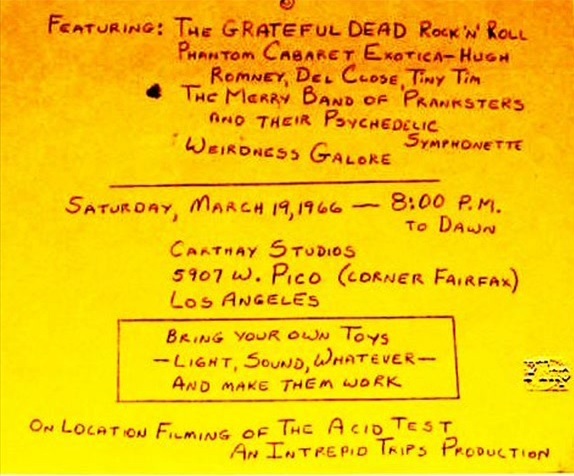 FEATURING: THE GRATEFUL DEAD ROCK'N'ROLL
PHANTOM CABARET EXOTICA-HUGH
ROMNEY, DEL CLOSE, TINY TIM
THE MERRY BAND OF PRANKSTERS
AND THEIR PSYCHEDELIC
SYMPHONETTE
WEIRDNESS GALORE
SATURDAY, MARCH 19, 1966 — 8:00 P.M.
TO DAWN
CARTHAY STUDIOS
5907 W. PICO (CORNER FAIRFAX)
LOS ANGELES
BRING YOUR OWN TOYS
—LIGHT, SOUND, WHATEVER—
AND MAKE THEM WORK
ON LOCATION FILMING OF THE ACID TEST
AN INTREPID TRIPS PRODUCTION